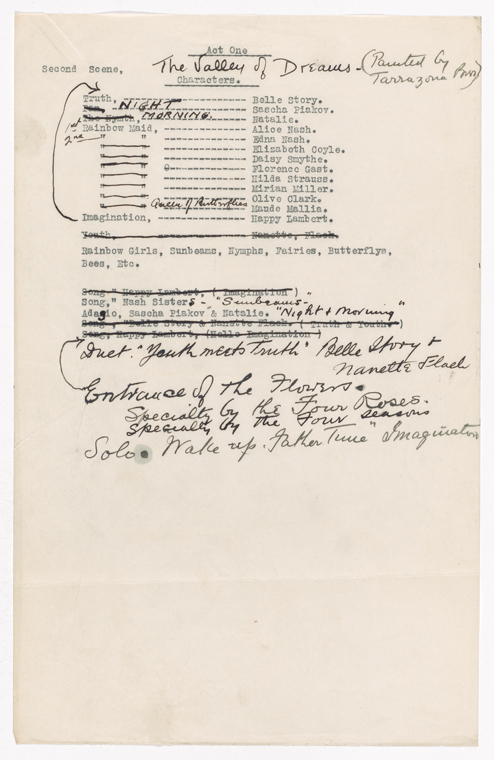 Act One
Second Scene, The Valley of Dreams - (Painted by
Tarrazona Bros)
Characters.
Truth, ---------------- Belle Story.
Pan, NIGHT ---------------- Sascha Piakov.
The Nymth, MORNING. ---------------- Natalie.
1st Rainbow Maid, ---------------- Alice Nash.
2nd " " ---------------- Edna Nash.
" " ---------------- Elizabeth Coyle.
---------------- Daisy Smythe.
---------------- Florence Gast.
---------------- Hilda Strauss.
---------------- Mirian Miller.
---------------- Olive Clark.
Queen of Butterflies ---------------- Maude Mallia.
Imagination, ---------------- Happy Lambert.
Youth, ---------------- Nanette, Flack
Rainbow Girls, Sunbeams, Nymphs, Fairies, Butterflys,
Bees, Etc.
Song " Happy Lambert, ( Imagination ) "
Song," Nash Sisters - "Sunbeams-
Adagio, Sascha Piakov & Natalie. "Night & Morning"
Song, "Belle Story & Nanette Flack. ( Truth & Youth. )
Song, Happy Lambert, (Hello Imagination )
Duet. "Youth meets Truth" Belle Story &
Nanette Flack
Entrance of the Flowers.
Specialty by the Four Roses.
Specialty by the Four Seasons
Solo. Wake up. Father Time" Imagination